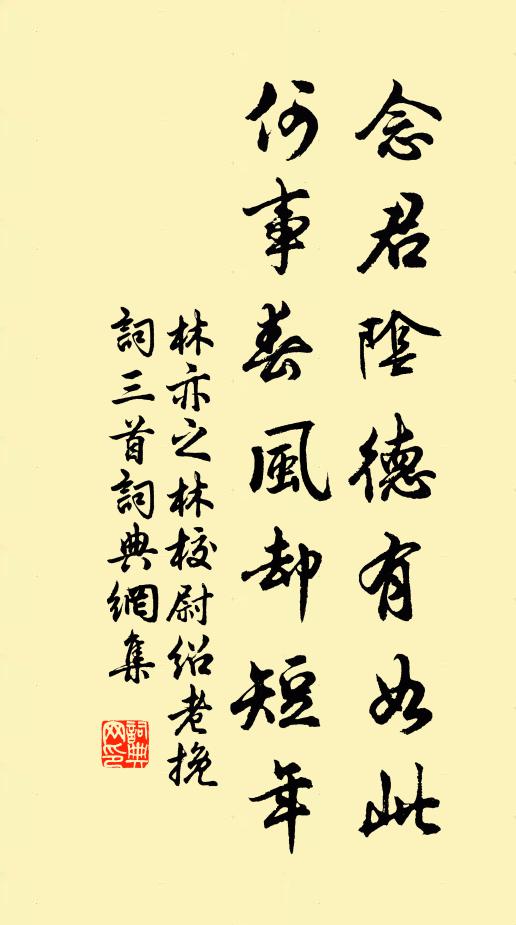 念君陰德有如此
何事春風却短年
林亦之林校尉紹老挽
詞三首詞典網集
詞典
网印